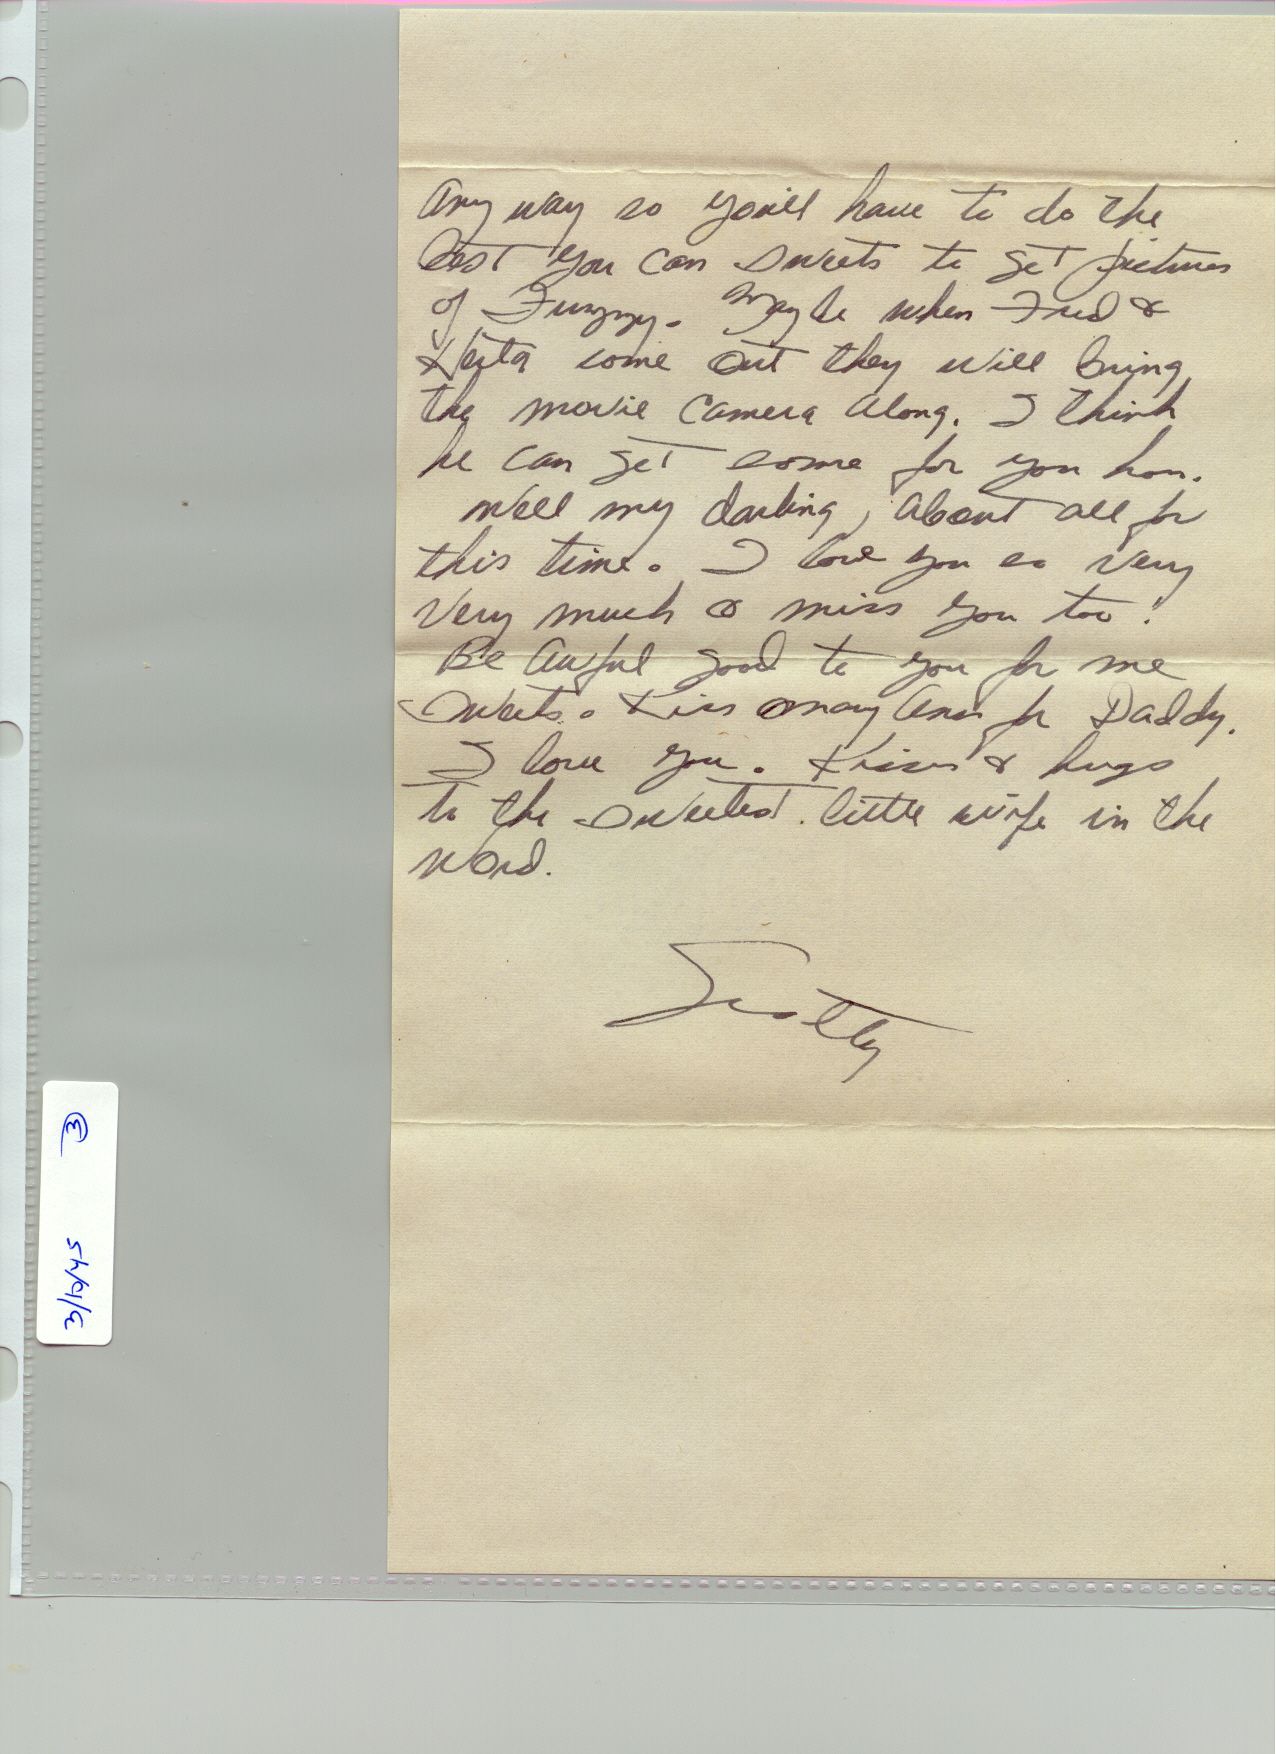 Any way so you'll have to do the
best you can sweets to get pictures
of Maybe when Fred &
come out they will bring
the movie camera along. I think
he can get some for you hon.
Well my darling, about all for
this time. I love you so very
very much & miss you too!
Be awful good to you for me
Sweets. Kiss Mary Ann for Daddy.
I love you. Kisses & hugs
to the sweetest little wife in the
word.
Scotty
3/12/45 3